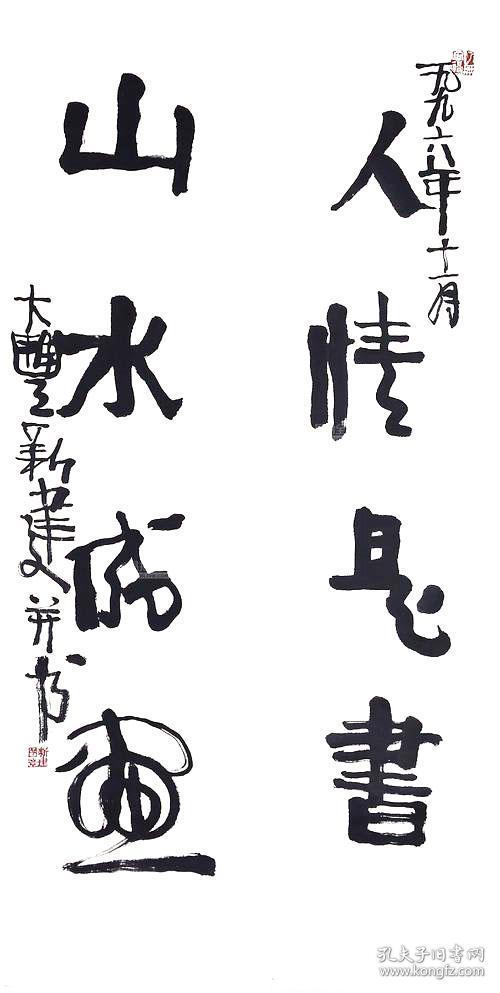 一九九六年十一月
人情是書
山水成画
大豐新建并书
新建
孔夫子旧书网
www.kongfz.com